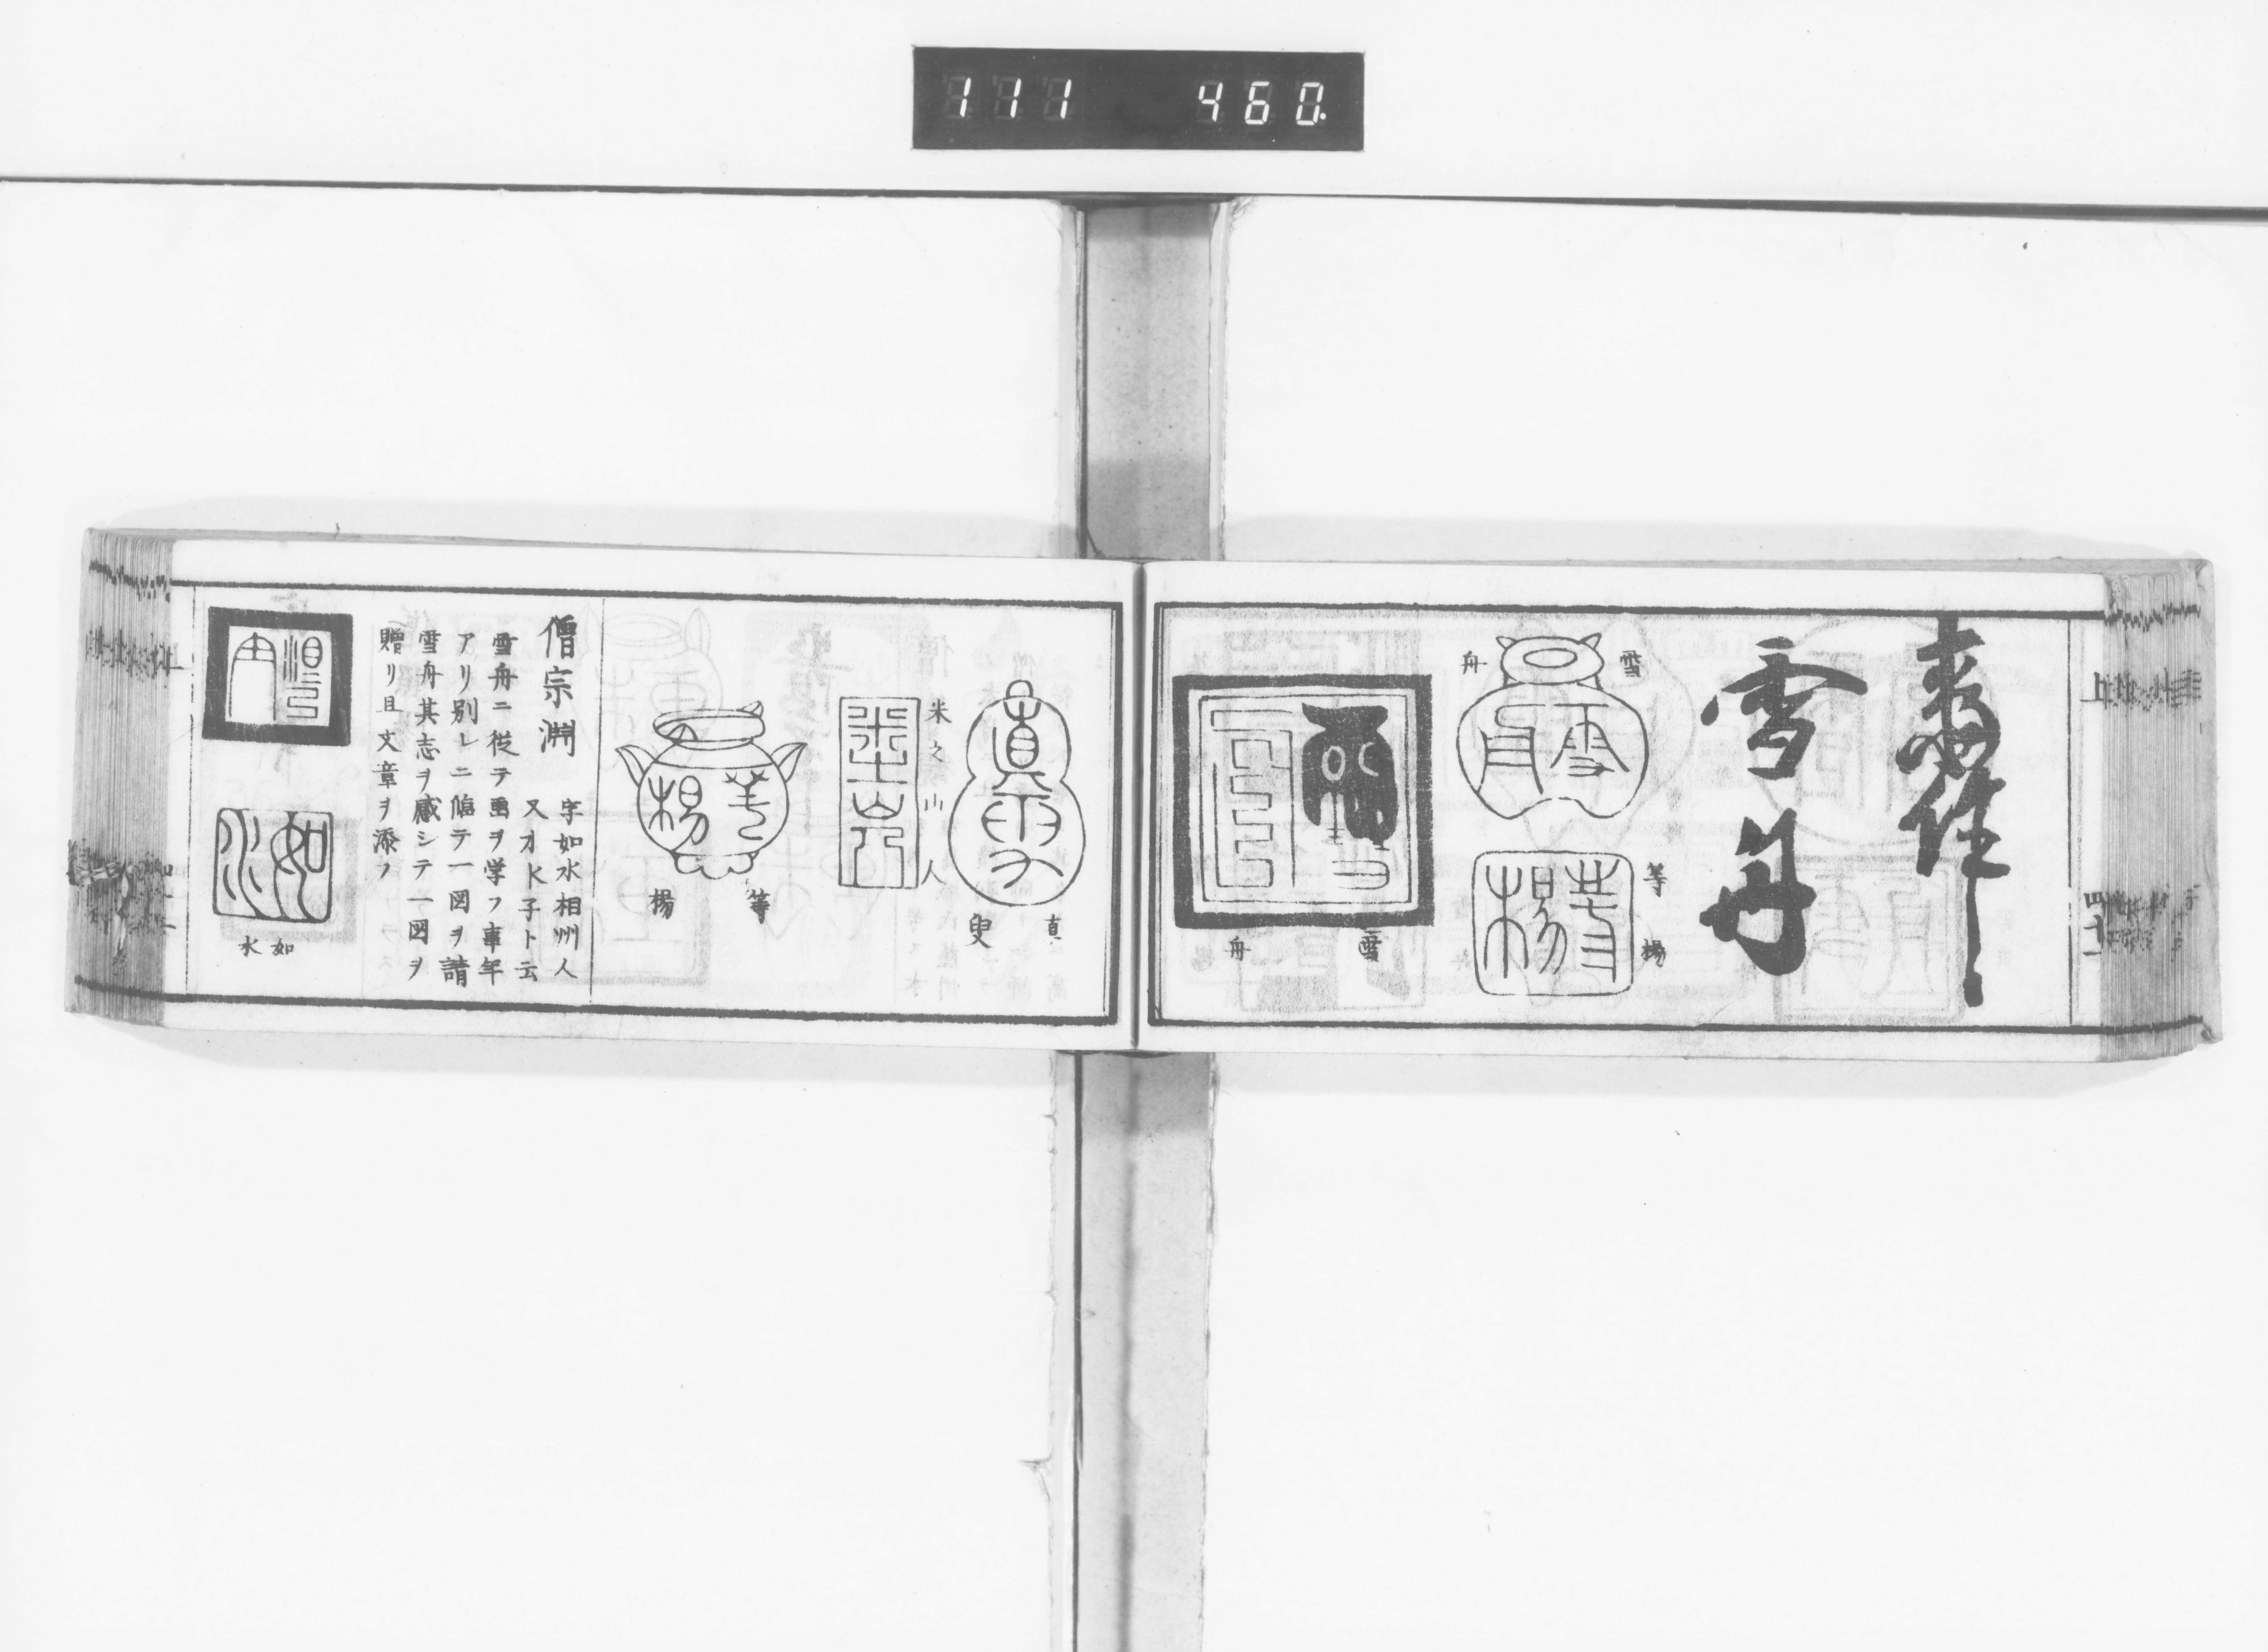 111 460.
雪舟
雪
舟
雪舟
等
楊
等楊
雪
舟
真
叟
米之山人
等
楊
等楊
僧宗淵
字如水相州人
又才K子ト云
雪舟ニ従テ画ヲ学フ事年
アリ別レニ臨テ一図ヲ請
雪舟其志ヲ感シテ一図ヲ
贈リ且文章ヲ添フ
如水
如
水